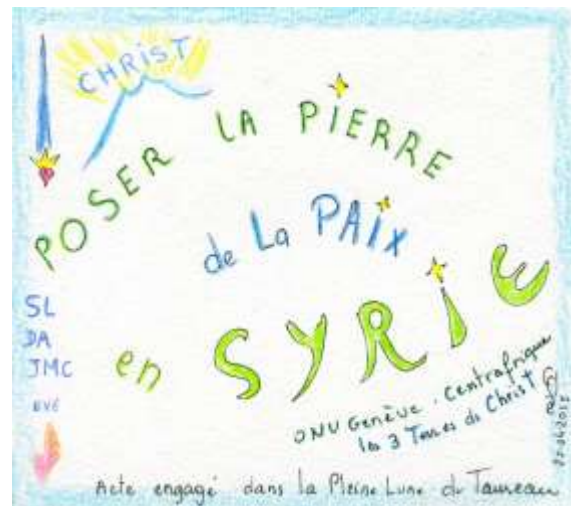 CHRIST
POSER LA PIERRE
de La PAIX
en SYRIE
SL
DA
JMC
EVE
ONU Genève. Centrafrique
les 3 Terres du Christ
Acte engagé dans la Pleine Lune du Taureau